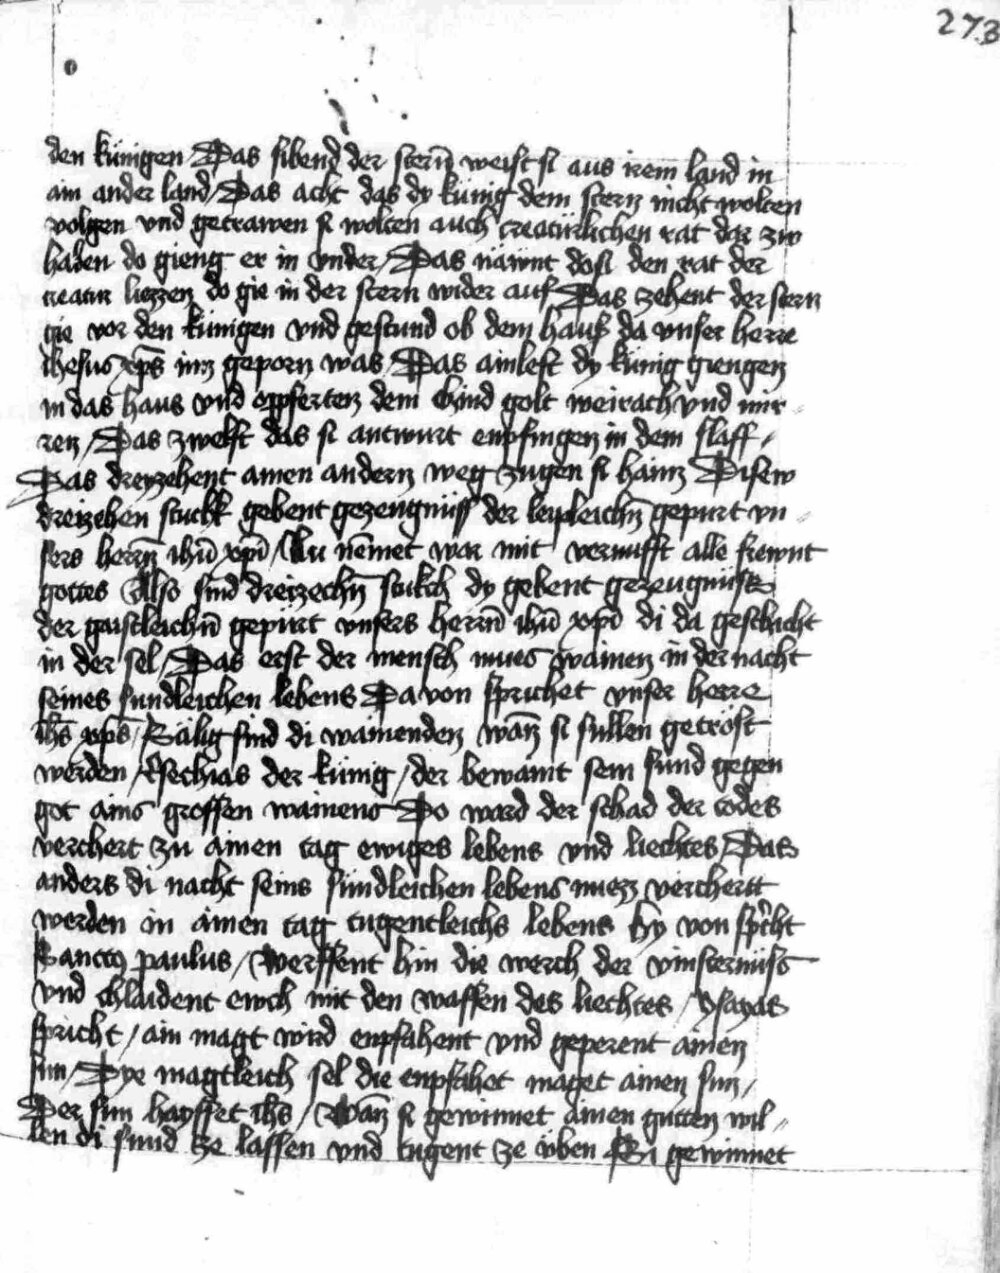 273
den künigen Das sibend der stern̄ weist si aus irem land in
ain ander land / Das acht das dy künig dem stern nicht wolten
volgen vnd getrawen si wolten auch creatürlichen rat dar zw
haben do gieng er in vnder / Das näwnt do si den rat der
creatur liezzen do gie in der stern wider auf Das zehent der stern
gie vor den künigen vnd gestund ob dem haus da vnser herre
ihesus xp̄s inn geporn was / Das ainleft dy künig giengen
in das haus vnd opferten dem chind golt weirach vnd mir
ren / Das zwelft das si antwurt enpfingen in dem slaff /
Das dreyzehent ainen andern weg zugen si haim Disew
dreizehen stuckh gebent gezeugnüss der leypleichn̄ gepurt vn
sers herrn̄ ih̄u xp̄i / Nu nēmet war mit vernufft alle frewnt
gottes Also sind dreizechn̄ stukch dy gebent gezeugnüss
der gaistleichn̄ gepürt vnsers herrn̄ ih̄u xp̄i di da geschicht
in der sel / Das erst der mensch mues wainen in der nacht
seines sundleichen lebens Da von sprichet vnser herre
ih̄s xp̄s / Sälig sind di wainenden wan̄ si sullen getröst
werden / Esechias der künig / der bewaint sein sund gegen
got ains grossen wainens Do ward der schad der todes
verchert zu ainen tag ewiges lebens vnd liechtes / Das
anders di nacht seins sündleichen lebens muezz verchertt
werden in ainen tag tugentleichs lebens hy von spricht
Sanctus paulus / Werffent hin die werch der vinsternüss
vnd chlaident ewch mit den waffen des liechtes / ysayas
spricht / ain magt wird enpfahent vnd geperent ainen
sun / Dye magtleich sel die enpfahet maget ainen sun /
Der sun haysset ih̄s / Wan̄ si gewinnet ainen gutten wil
len di sund ze lassen vnd tugent ze üben Si gewinnet